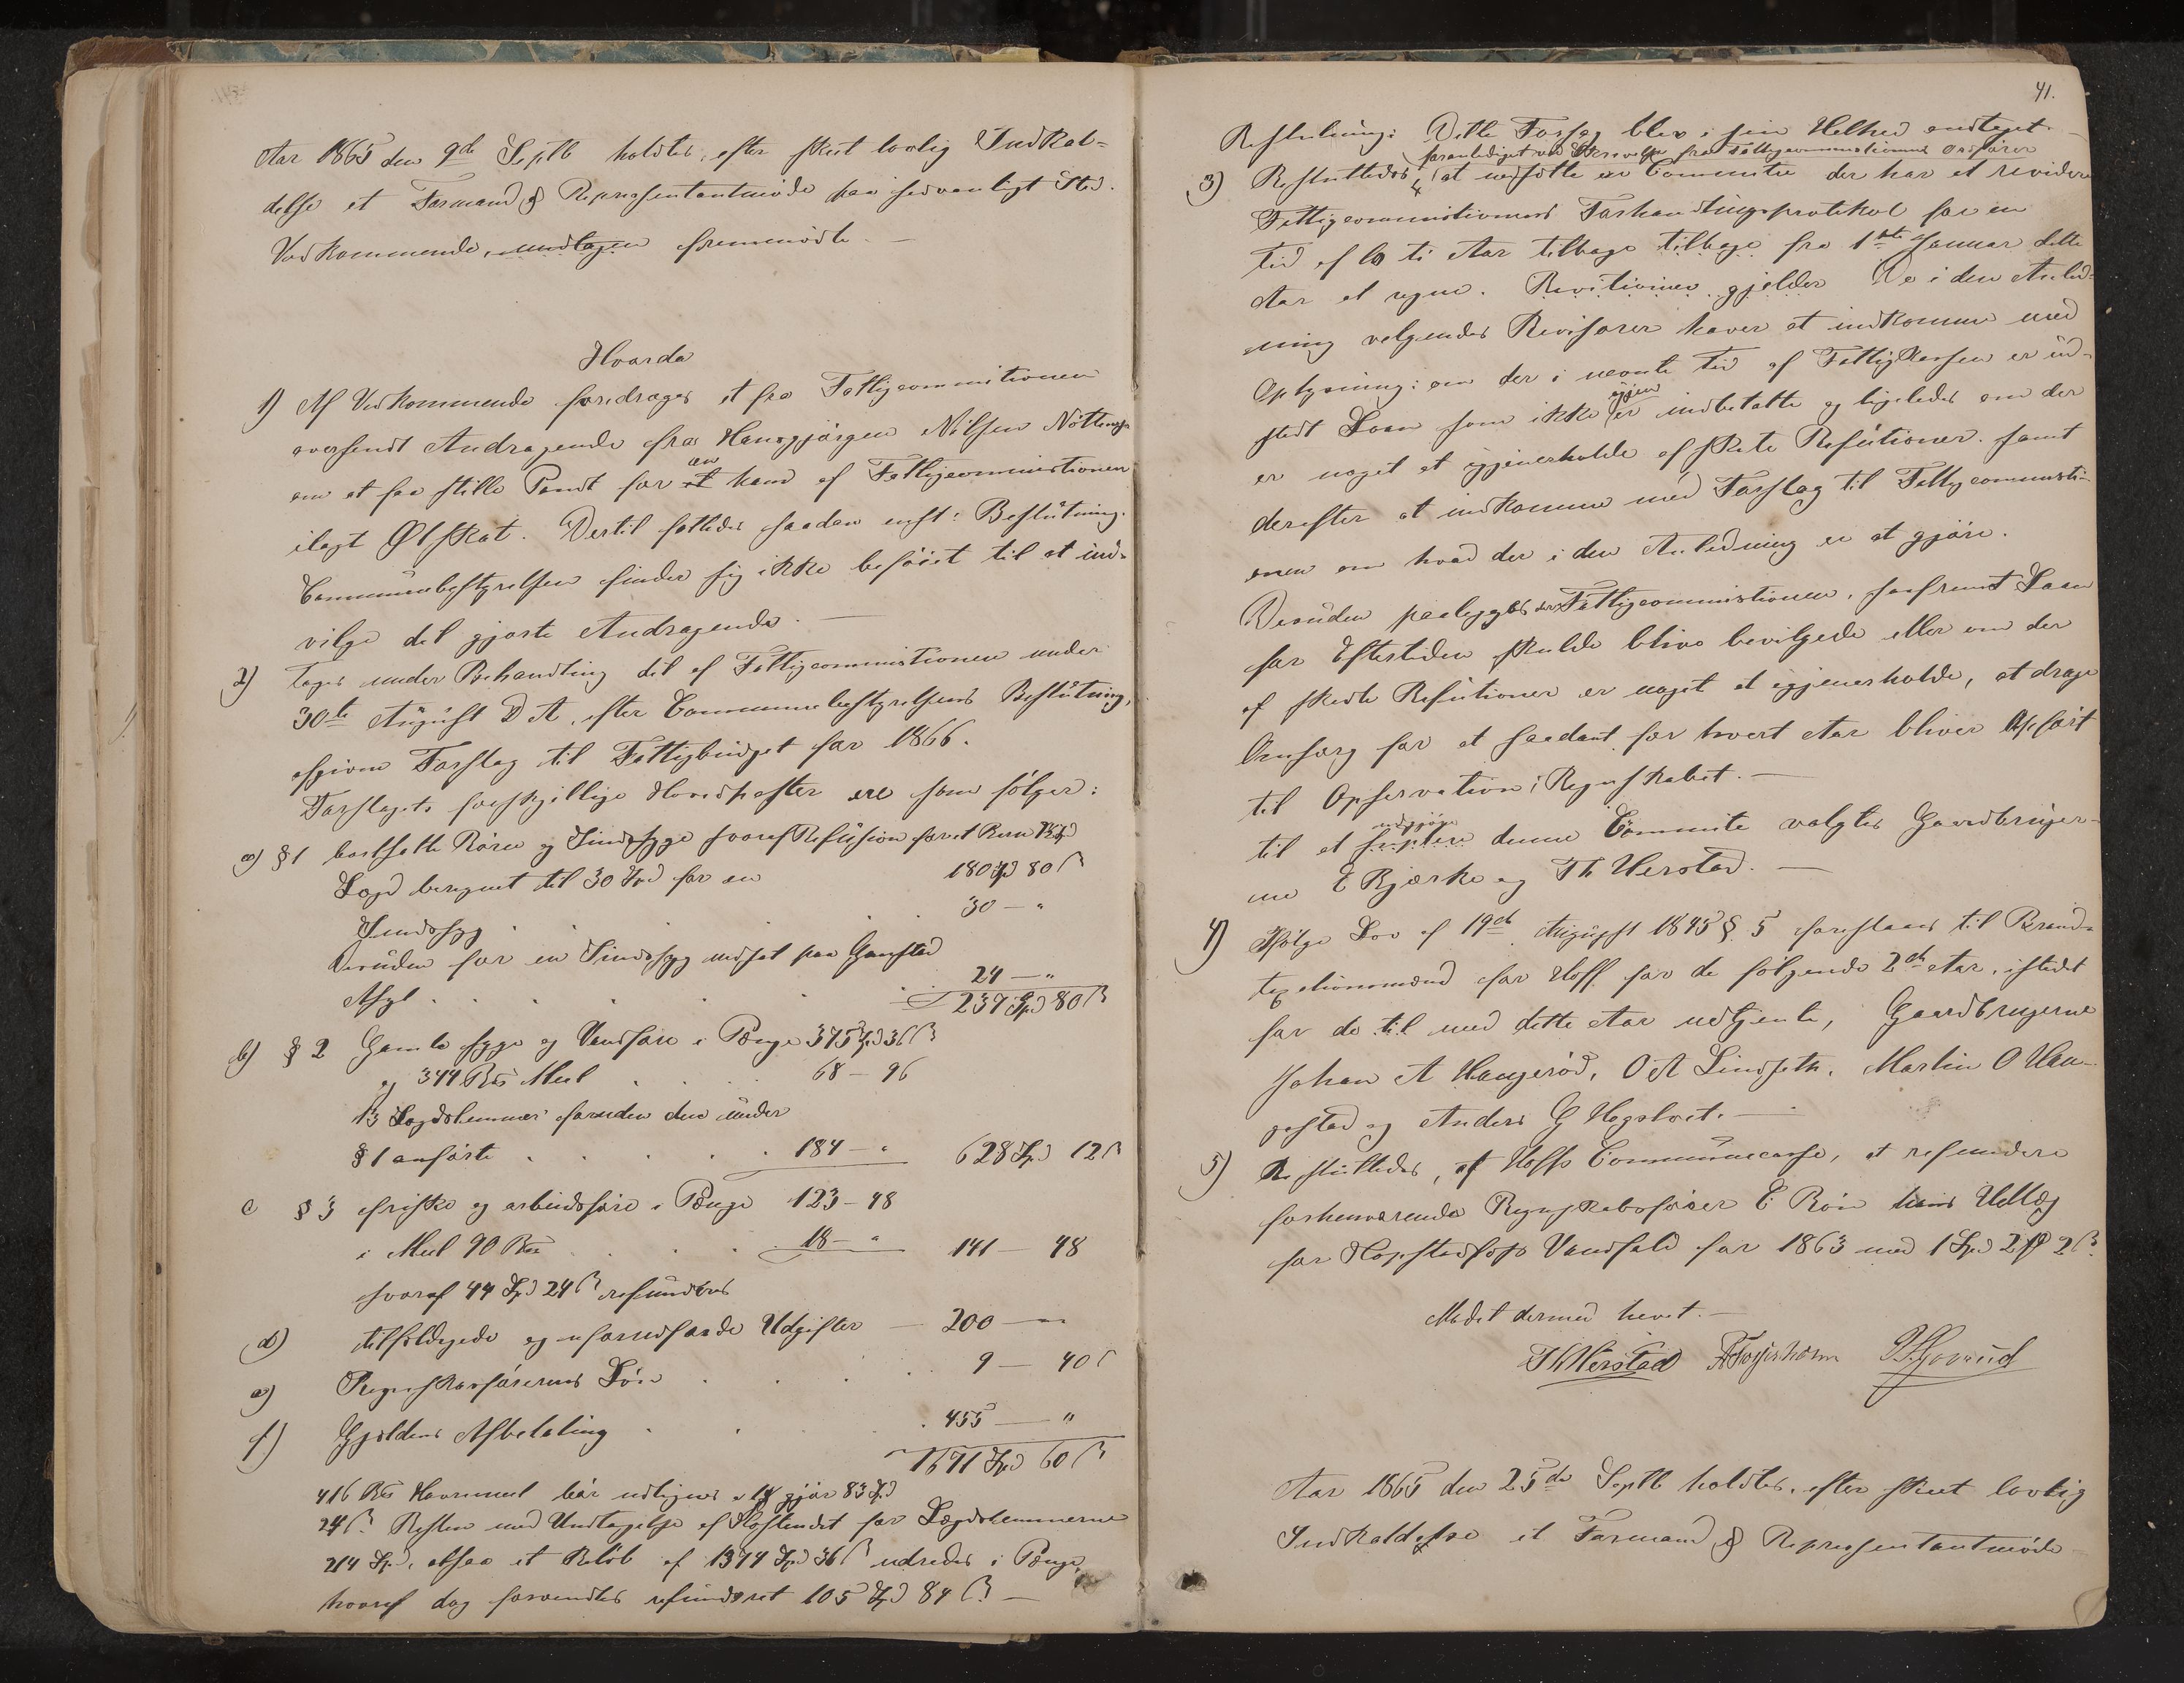 Aar 1865 den 9de Septb holdtes, efter skeet lovlig Indkal=
delse et Formand & Repræsentantmøde paa sedvanligt Sted.
Vedkommende, undtagen fremmødte. —
Hvorda
1) Af Vedkommende foredrages et fra Fattigcommitionen
oversendt Andragende fra Hansgjørgen Nilsen
om at faa stille Pandt for et en ham af Fattigcommistionen
ilagt Ølskat. Dertil fattedes saadan enst: Beslutning.
Communebestyrelsen finder sig ikke beføiet til at ind=
vilge det gjorte Andragende. —
2) Toges under Behandling det af Fattigcommistionen under
30te August D A, efter Communebestyrelsens Beslutning,
afgivne Forslag til Fattigbudget for 1866.
Forslagets forskjellige Hovedposter ere som følger:
a) § 1 bortsatte Børn og Sindssyge hvoraf Refusion for et Barn
Lægd beregnet til 30 Spd for en 180 Spd 80 ß
Sindssyg . . . . 30 — "
Desuden for en Sindssyg indsat paa Gaustad
Asyl . . . . 24 — "
237 Spd 80 ß
b) § 2 Gamle syge og Vandføre i Penge 375 Spd 36 ß
og 344 Bs Meel . . . 68 — 96
13 Lægdslemmer foruden den under
§ 1 anførte . . . . . 184 — " 628 Spd 12 ß
c § 3 friske og arbeidsføre i Penge 123 — 48
i Meel 90 Bs . . . 18 — " 141 — 48
hvoraf 44 Spd 24 ß refunderes
d) tilfeldigede og uforudseede Udgifter — 200 — "
e) Regnskabsførerens Løn . . . . 9 — 40 ß
f) Gjeldens Afbetaling . . . 455 — "
1671 Spd 60 ß
416 Bs Havremeel bør udlignes a gjør 83 Spd
24 ß. Resten med Undtagelse af Kostendet for Lægdslemmerne
214 Spd, altsaa et Beløb af 1374 Spd 36 ß udredes i Penge,
hvoraf dog forventes refunderet 105 Spd 84 ß. —
41.
Beslutning: Dette Forslag blev i sin Helhed andtaget. —
foranlediget ved Skrivelse fra Fattigcommistionens Ordfører
3) Besluttedes, at nedsette en Committe der har at revidere
Fattigcommistionens Forhandlingsprotokol for en
tid af ti Aar tilbage tilbage fra 1ste Januar dette
Aar at regne. Revitionen gjelder De i den Anled=
ning velgendes Revisorer haver at indkomme med
Oplysning: om der i nevnte tid af Fattigkassen er ud=
stedt Laan som ikke igjen er indbetalte og ligeledes om der
er noget at igjenerholde af skete Refutioner. samt
derefter at indkomme med Forslag til Fattigcommisti=
onen om hvad der i den Anledning er at gjøre.
Desuden paalegges Fattigcommistionen, saafremt Laan
for Eftertiden skulde blive bevilgede eller om der
af skedte Refutioner er noget at igjenerholde, at drage
Omsorg for at saadant for hvert Aar bliver Opført
til Opservation i Regnskabet. —
til at udgjøre denne Committe valgtes Gaardbruger=
ne E Bjørke og Th Herstad. —
4) Ifølge Lov af 19de August 1845 § 5 foreslaaes til Brand=
taxtionsmend for Hoff for de følgende 2de Aar, istedet
for de til med dette Aar udtjente, Gaardbrugerne
Johan A Haugerød, O A Lindseth, Martin O Hau=
gestad og Anders G Hegsbroet. —
5) Besluttedes, af Hoffs Communecasse, at refundere
forhenværende Regnskabsfører E Bøn hans Udlæg
for Hopstadfoss Vandfald for 1863 med 1 Spd 2 ₰ 2 ß.
Mødet dermed hevet. —
Th Herstad
Aar 1865 den 25de Septb holdtes, efter skeet lovlig
Indkaldelse et Formand & Repræsentantmøde